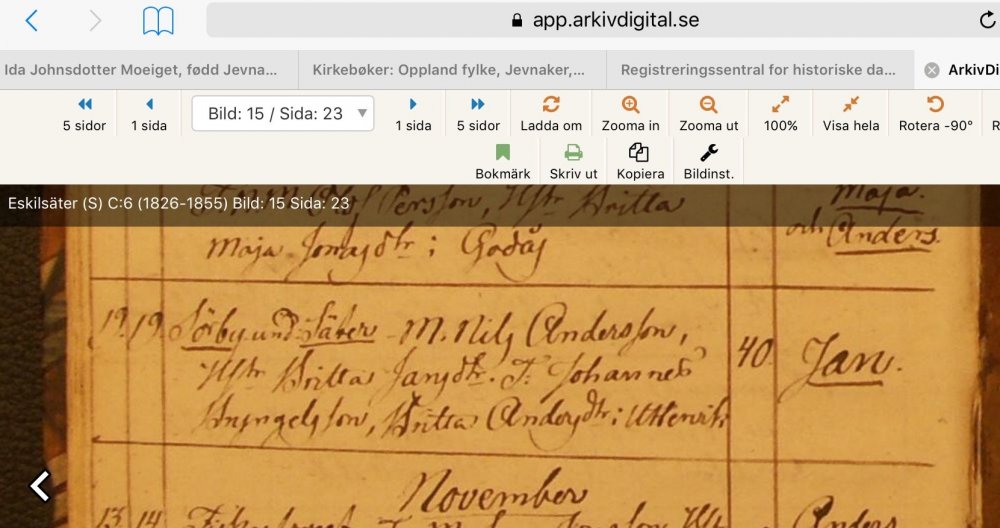 app.arkivdigital.se
Ida Johnsdotter Moeiget, fødd Jevna...
Kirkebøker: Oppland fylke, Jevnaker,...
Registreringssentral for historiske da...
ArkivDi
5 sidor
1 sida
Bild: 15 / Sida: 23
1 sida
5 sidor
Ladda om
Zooma in
Zooma ut
100%
Visa hela
Rotera -90°
R
Bokmärk
Skriv ut
Kopiera
Bildinst.
Eskilsäter (S) C:6 (1826-1855) Bild: 15 Sida: 23
Persson, Hstr Britta
Maja.
Maja Jonasdtr i Godås
och Anders.
19. Sörby und. Säter - M. Nils Andersson,
Hstr Britta Jansdtr. F. Johannes
40.
Jan.
Bryngelsson, Britta Andersdtr i Uttervik
November
13 14
Anders